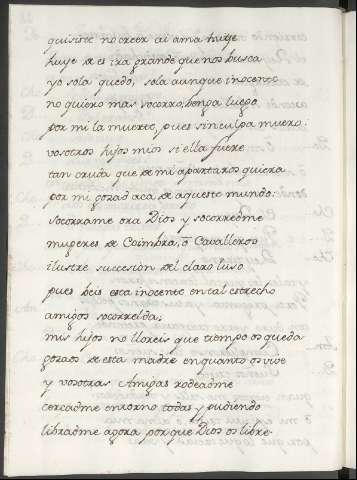 quisiste no creer ai ama huye
huye q̃ es ira grande que nos busca
yo sola quedo, sola aunque inocente
no quiero mas socorro, benga luego
por mi la muerte, pues sin culpa muero:
vosotros hijos mios si ella fuere
tan cruda que de mi apartaros quiera
por mi gozad aca de aqueste mundo:
socorrame ora Dios y socorredme
mugeres de Coimbra, ò Cavalleros
ilustre succesion del claro luso
pues beis esta inocente en tal estrecho
amigos socorrelda;
mis hijos no lloreis que tiempo os queda
gozaos de esta madre en quanto os vive
y vosotras Amigas rodeadme
cercadme en torno todas y pudiendo
libradme agora porque Dios os libre.